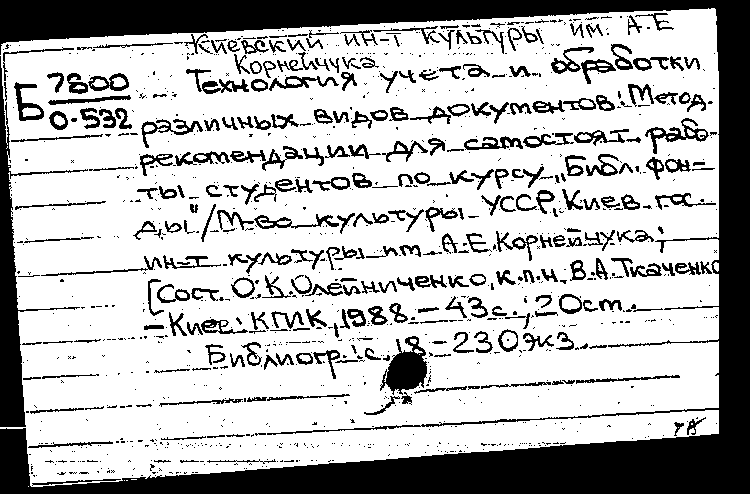 Киевский ин-т культуры им. А.Е
Корнейчука
Б 7800
0-532
Технология учета и обработки
различных видов документов: Метод.
рекомендации для самостоят. рабо-
ты студентов по курсу „Библ. фон-
ды"/М-во культуры УССР, Киев. гос.
ин-т культуры им. А.Е.Корнейчука;
[Сост. О.К.Олейниченко, к.п.н. В.А.Ткаченко
-Киев: КГИК, 1988.-43с.; 20см.
Библиогр.: с. 18-230экз.